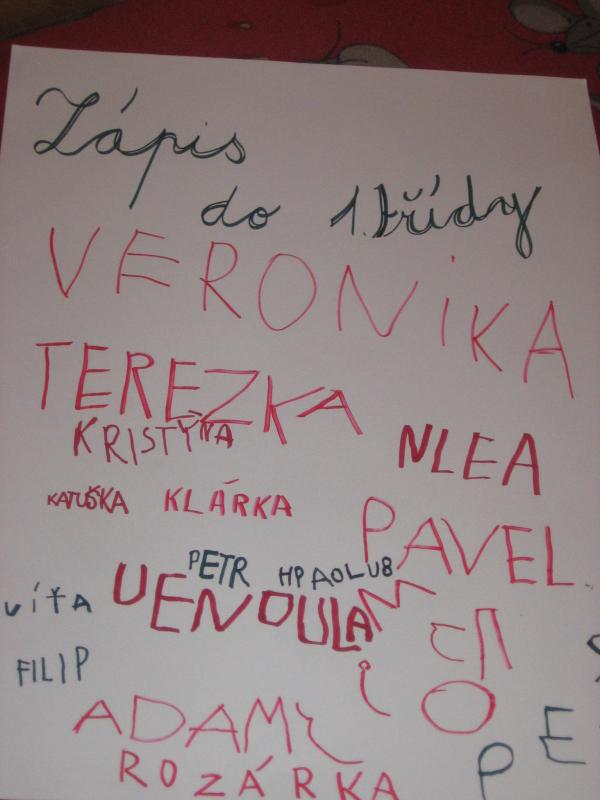 Zápis
do 1. třídy
VERONiKA
TEREZKA
KRISTÝNA
NLEA
KATUŠKA KLÁRKA
PAVEL
PETR HPAOLU8
VÍŤA
VENDULA
FILIP
ADAM
ROZÁRKA